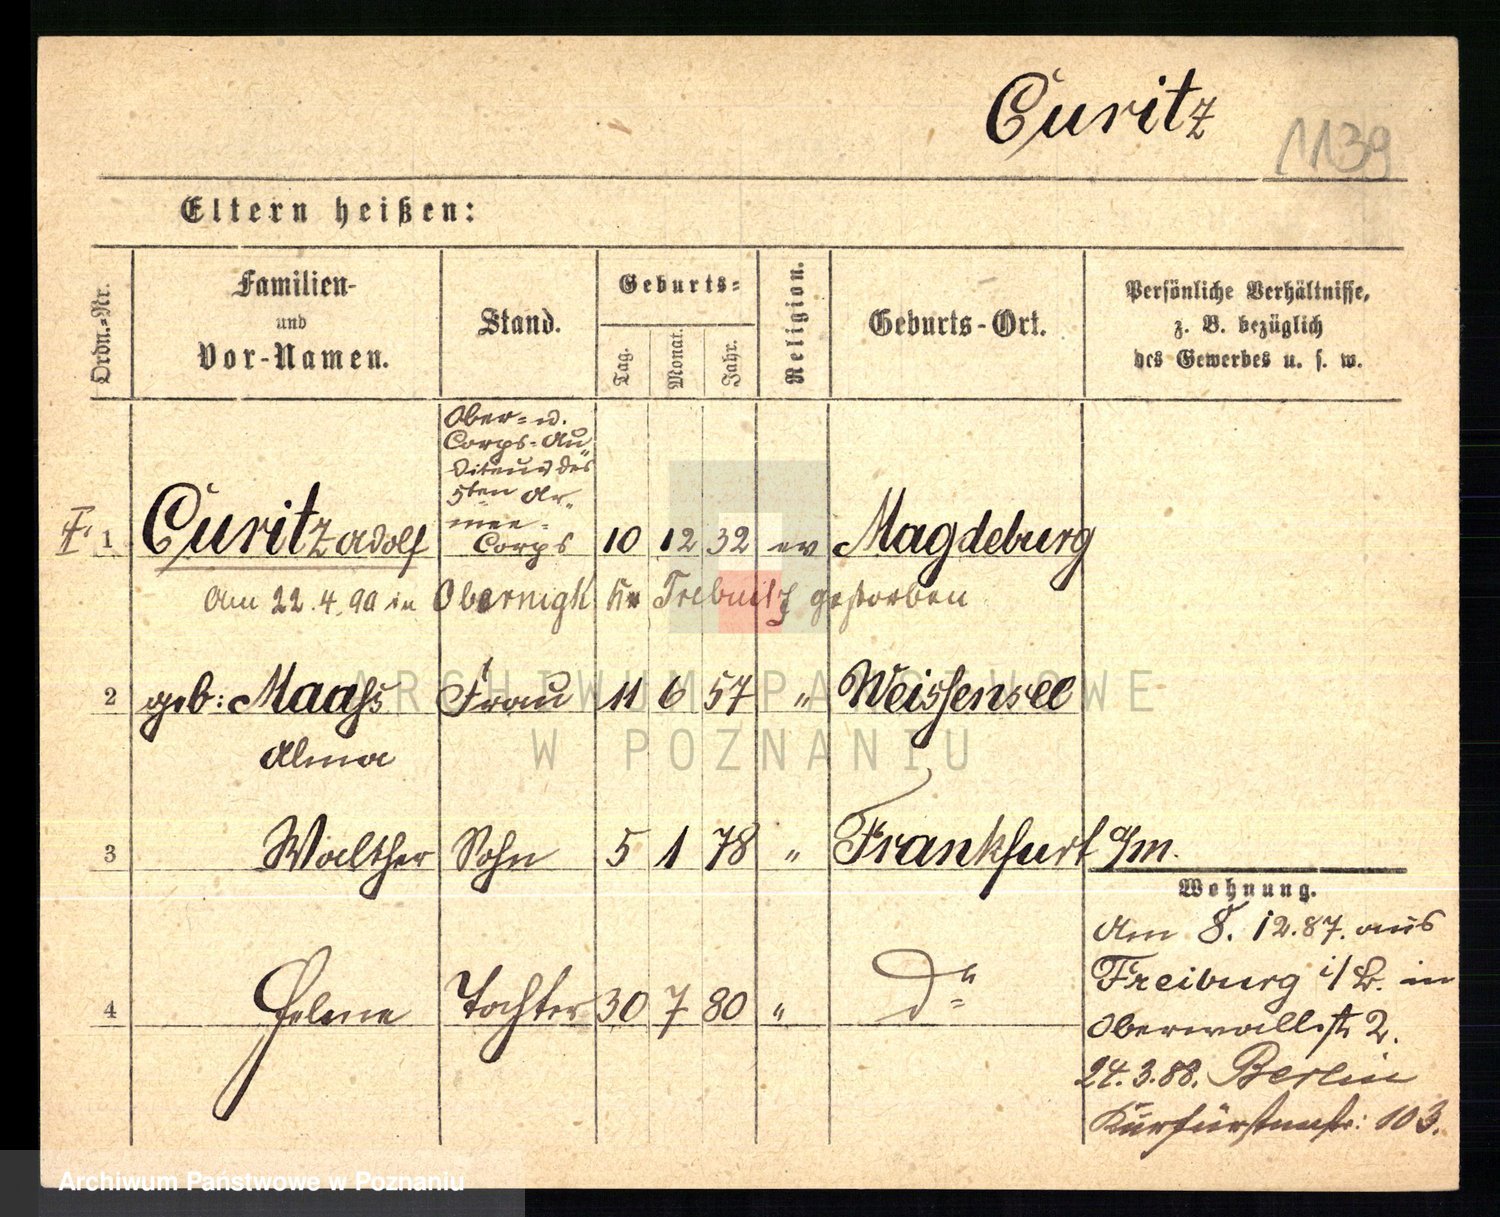 Curitz
1139
Eltern heißen:
Ordn.-Nr.
Familien-
und
Vor-Namen.
Stand.
Geburts-
Tag.
Monat.
Jahr.
Religion.
Geburts-Ort.
Persönliche Verhältnisse,
z. B. bezüglich
des Gewerbes u. s. w.
Ober- u.
Corps-Au
diteur des
5ten Ar-
mee-
Corps
1 Curitz Adolf 10 12 32 ev Magdeburg
Am 22.4.90 in Obernigk Kr Trebnitz gestorben
2 geb: Maahs Frau 11 6 57 " Weissensee
Alma
3 Walther Sohn 5 1 78 " Frankfurt a/m.
Wohnung.
4 Helene Tochter 30 7 80 " do
Am 8. 12.87. aus
Freiburg i/B. in
Oberwallstr 2.
24.3.88. Berlin
Kurfürstenstr: 103.
ARCHIWUM PAŃSTWOWE
W POZNANIU
Archiwum Państwowe w Poznaniu